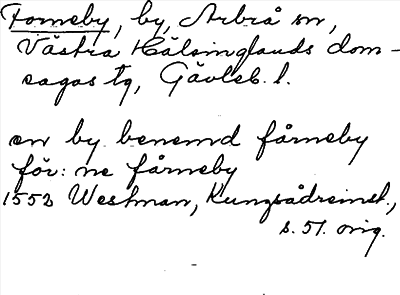 Forneby, by, Arbrå sn,
Västra Hälsinglands dom-
sagas tg, Gävleb. l.
en by benemd fårneby
för: ne fårneby
1552 Westman, Kungsådreinst.,
s. 51. orig.